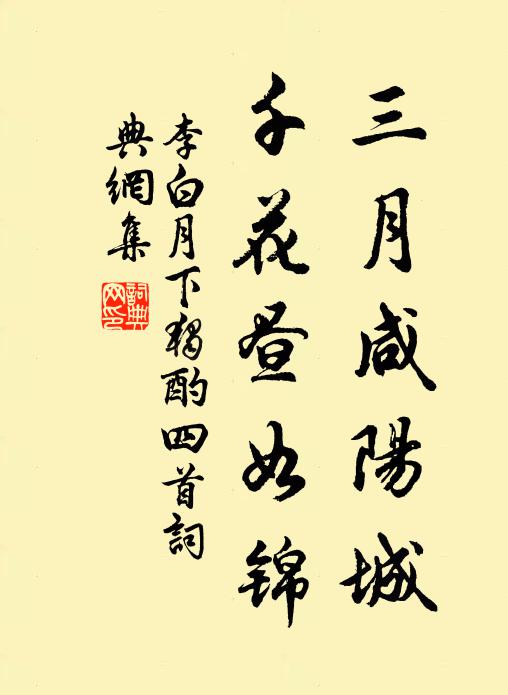 三月咸陽城
千花昼如锦
李白月下獨酌四首詞
典網集
詞典
网印